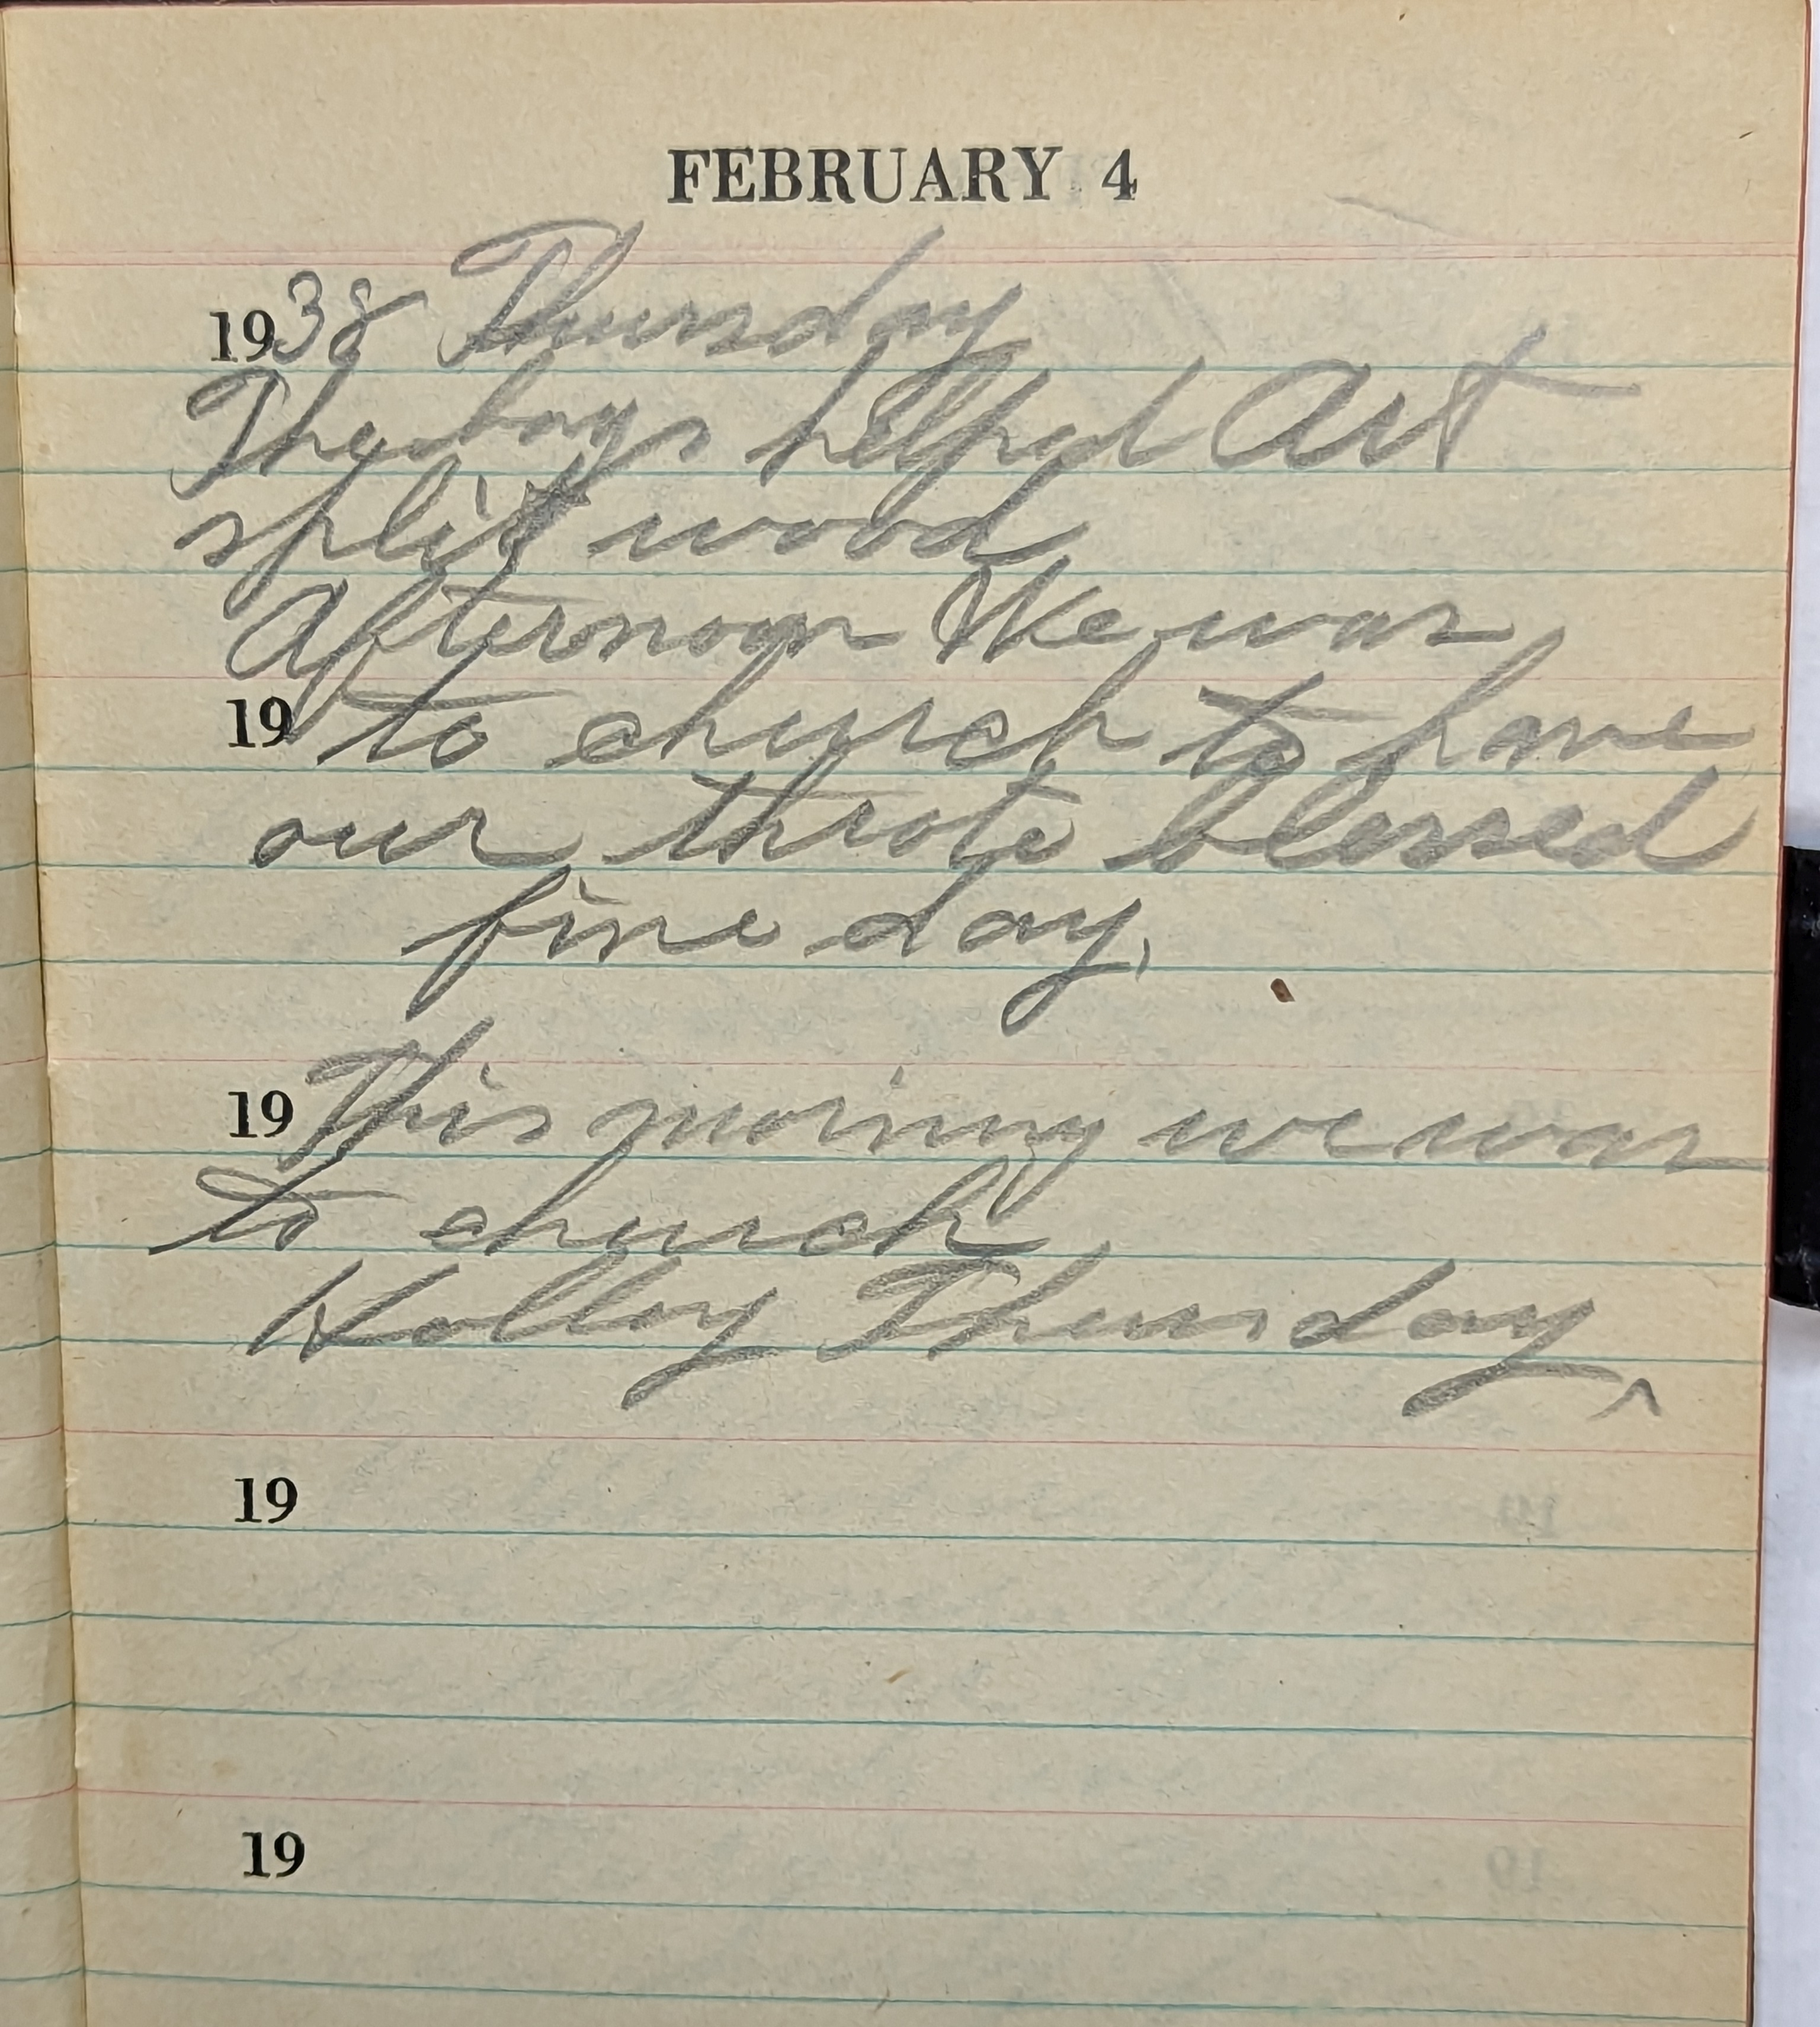 FEBRUARY 4
1938 Thursday
The boys helped Art
split wood
Afternoon We was
19 to church to have
our throte blessed
fine day,
19 This morning we was
to church
Holley Thursday
19
19